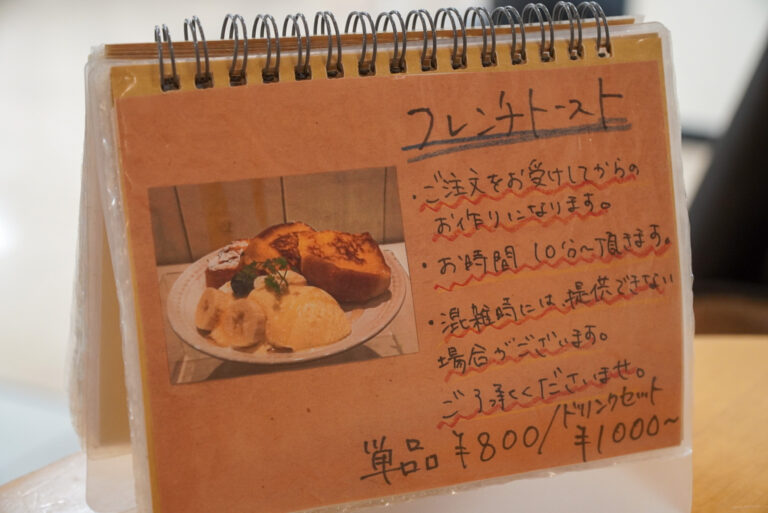 フレンチトースト
・ご注文をお受けしてからの
お作りになります。
・お時間10分〜頂きます。
・混雑時には提供できない
場合がございます。
ご了承くださいませ。
単品 ¥800/ドリンクセット
¥1000〜